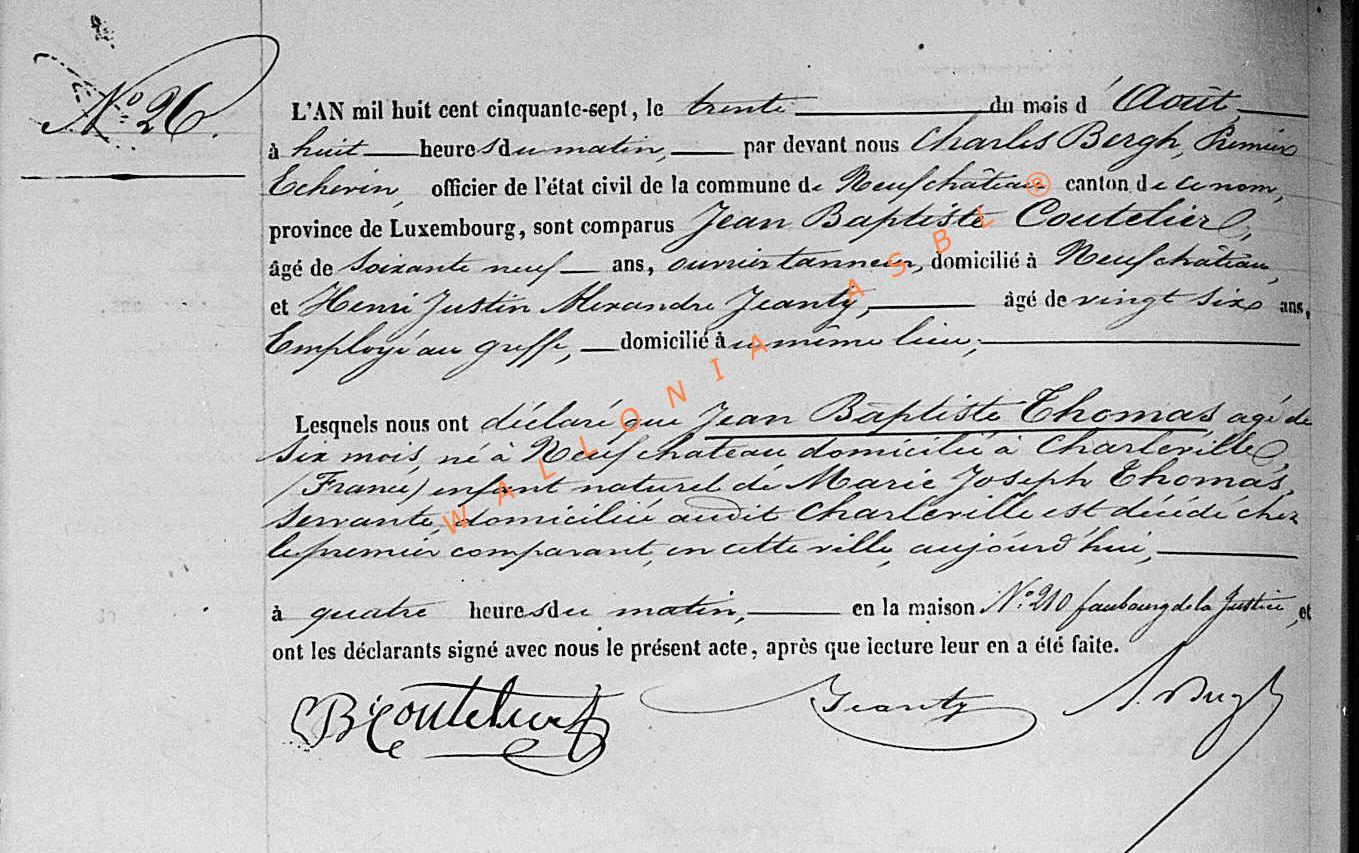 N° 26.
L'AN mil huit cent cinquante-sept, le trente du mois d'Août,
à huit heures du matin, par devant nous Charles Bergh, Premier
Echevin, officier de l'état civil de la commune de Neufchâteau canton de ce nom,
province de Luxembourg, sont comparus Jean Baptiste Coutelier,
âgé de soixante neuf ans, ouvrier tanneur, domicilié à Neufchâteau,
et Henri Justin Alexandre Jeanty, âgé de vingt six ans,
Employé au greffe, domicilié au même lieu;
Lesquels nous ont déclaré que Jean Baptiste Thomas agé de
six mois, né à Neufchateau domicilié à Charleville
(France) enfant naturel de Marie Joseph Thomas,
servante, domiciliée audit Charleville est décédé chez
le premier comparant, en cette ville, aujourd'hui,
à quatre heures du matin, en la maison N° 210 faubourg de la Justice, et
ont les déclarants signé avec nous le présent acte, après que lecture leur en a été faite.
Coutelier Jeanty Bergh
WALLONIA ASBL ®